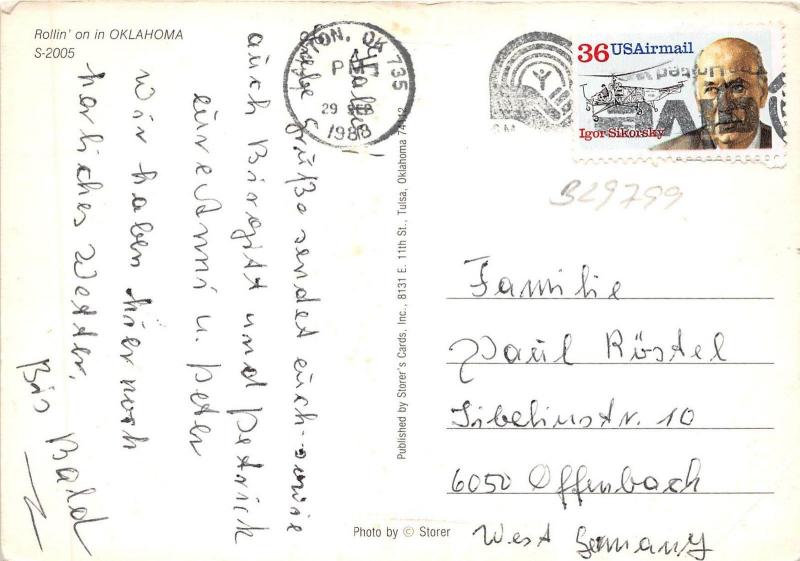 Rollin' on in OKLAHOMA
S-2005
Hallo!
Liebe Grüße sendet euch - sowie
auch Birgitt und Petrick
eure Anni u. Peter
Wir haben hier noch
herliches Wetter.
Bis Bald
Published by Storer's Cards, Inc., 8131 E. 11th St., Tulsa, Oklahoma 74112
Photo by © Storer
TON, OK 735
PM
29 SEP
1988
36 USAirmail
Igor Sikorsky
B29799
Familie
Paul Röstel
Sibeliusstr. 10
6050 Offenbach
West Germany